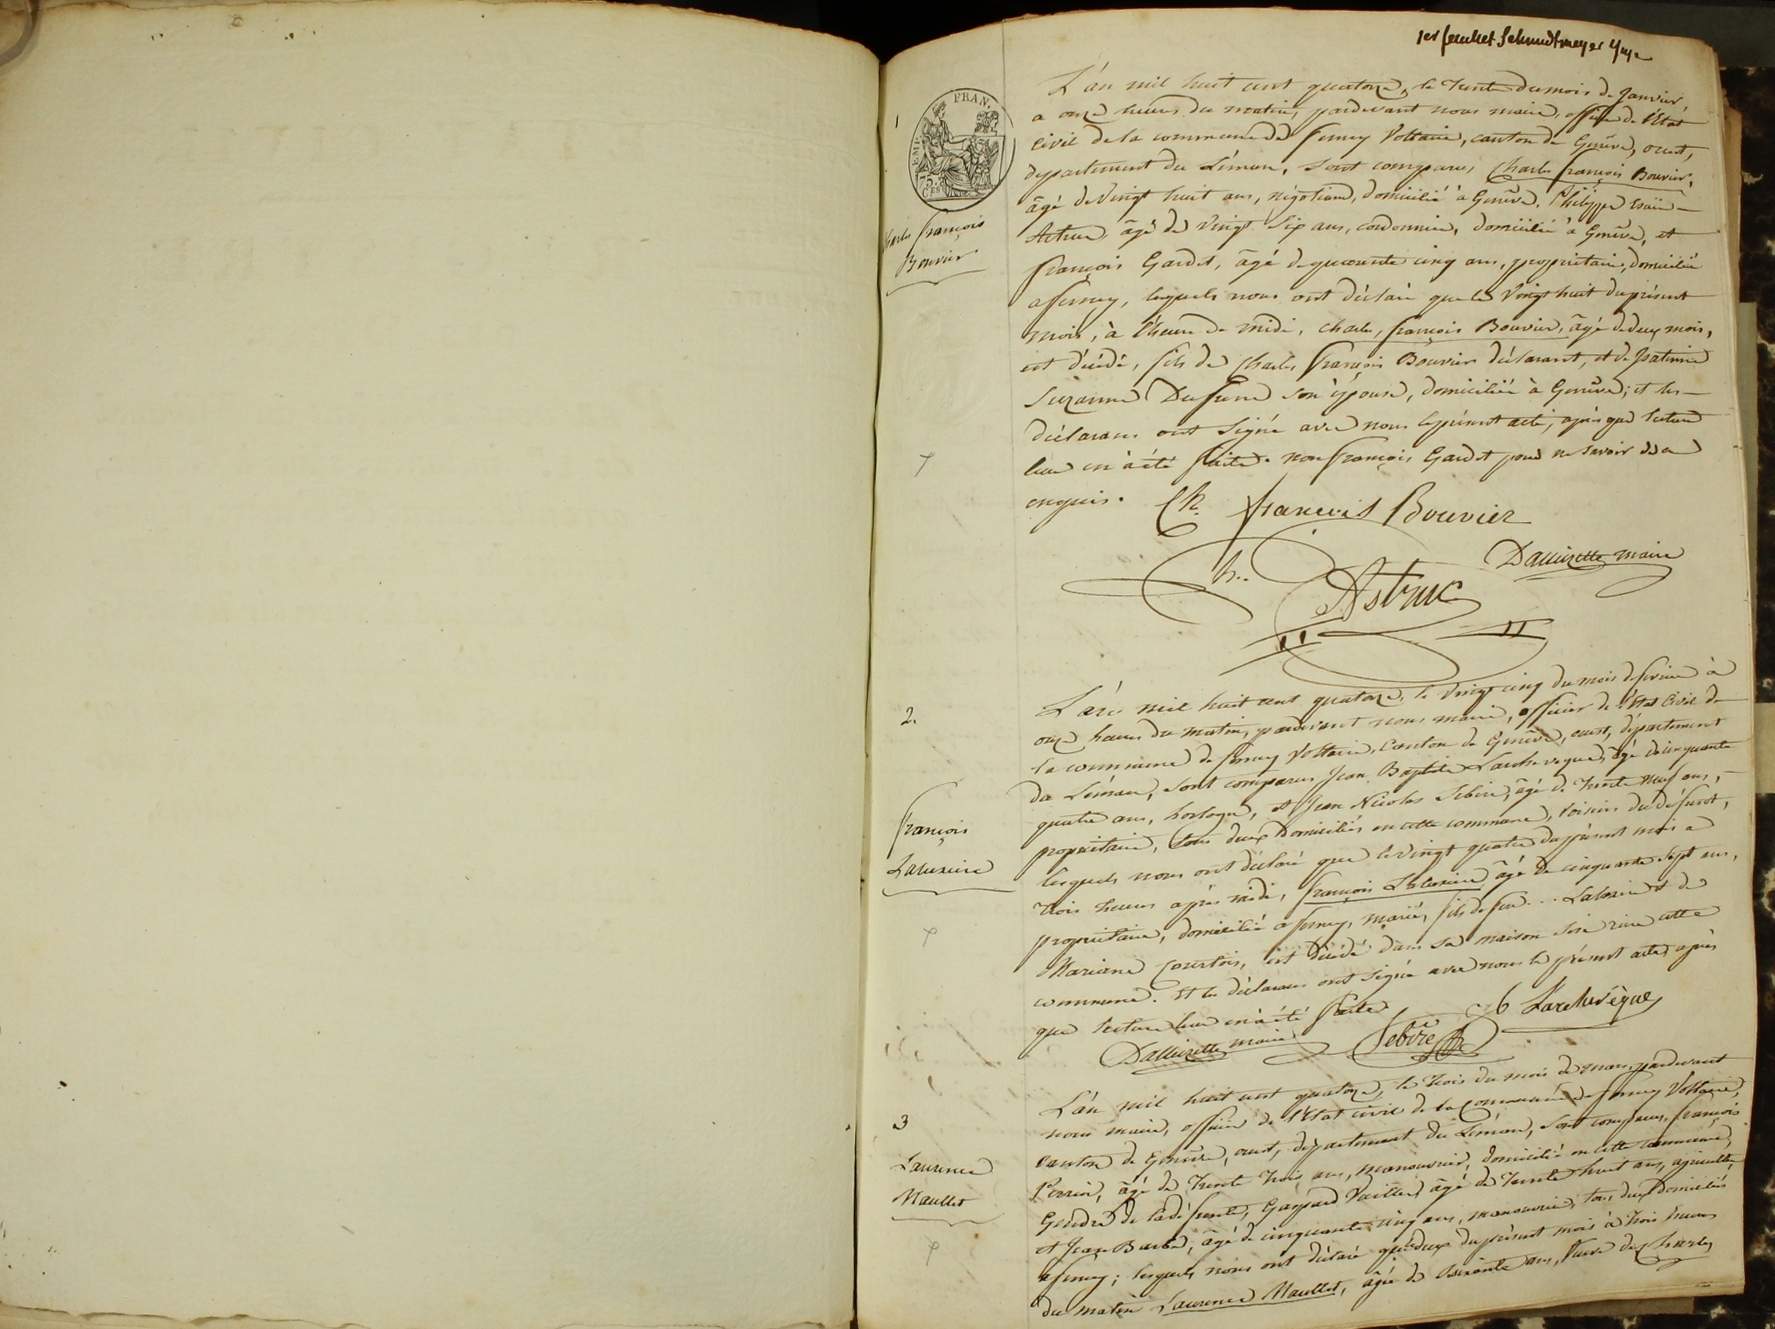 1er feuillet
FRAN.
EMP.
75
1
Charles françois
Bouvier
L'an mil huit cent quatorze, le trente du mois de Janvier,
a onze heures du matin, pardevant nous maire, officier de l'État
Civil de la commune de ferney Voltaire, canton de Genève, ouest,
département du Léman, sont comparus Charles françois Bouvier,
âgé de vingt huit ans, négotiant, domicilié à Genève, Philippe
Astruc, âgé de vingt six ans, cordonnier, domicilié à Genève, et
françois Gardet, âgé de quarante cinq ans, propriétaire, domicilié
a ferney, lesquels nous ont déclaré que le Vingt huit du présent
mois, à l'heure de midi, Charles françois Bouvier, âgé de deux mois,
est décédé, fils de Charles françois Bouvier déclarant, et de
Suzanne son épouse, domiciliée à Genève; et les
déclarans ont signé avec nous le présent acte, après que lecture
leur en a été faite. non françois Gardet pour ne savoir de ce
enquis.
Ch. francois Bouvier
Dallizette maire
Ph. Astruc
2.
François
Laluxiere
L'an mil huit cent quatorze, le vingt cinq du mois de fevrier à
onze heures du matin, pardevant nous maire, officier de l'État Civil de
la commune de ferney Voltaire, Canton de Genève, ouest, département
du Léman, sont comparus Jean Baptiste Larchevêque, âgé de cinquante
quatre ans, horloger, et Jean Nicolas Sebire, âgé de trente neuf ans,
propriétaire, tous deux domiciliés en cette commune, voisins du défunt,
lesquels nous ont déclaré que le vingt quatre du présent mois a
trois heures après midi, françois âgé de cinquante sept ans,
propriétaire, domicilié a ferney, marié, fils de feu ... et de
Mariane Courtois, est décédé dans sa maison sise rière cette
commune. Et les déclarans ont signé avec nous le présent acte, après
que lecture leur en a été faite
Dallizette maire
Sebire
J b Larchevêque
3
Laurence
Maullet
L'an mil huit cent quatorze, le trois du mois de mars, pardevant
nous maire, officier de l'État civil de la Commune de ferney Voltaire,
Canton de Genève, ouest, département du Léman, sont comparus, françois
Perrin, âgé de trente trois ans, manouvrier, domicilié en cette commune,
Gendre de la défunte, Gaspard âgé de trente huit ans, agriculteur,
et Jean Barbe, âgé de cinquante cinq ans, manouvrier, tous deux domiciliés
a ferney; lesquels nous ont déclaré que le deux du présent mois à trois heures
du matin Laurence Maullet, âgée de soixante ans, Veuve de Charles